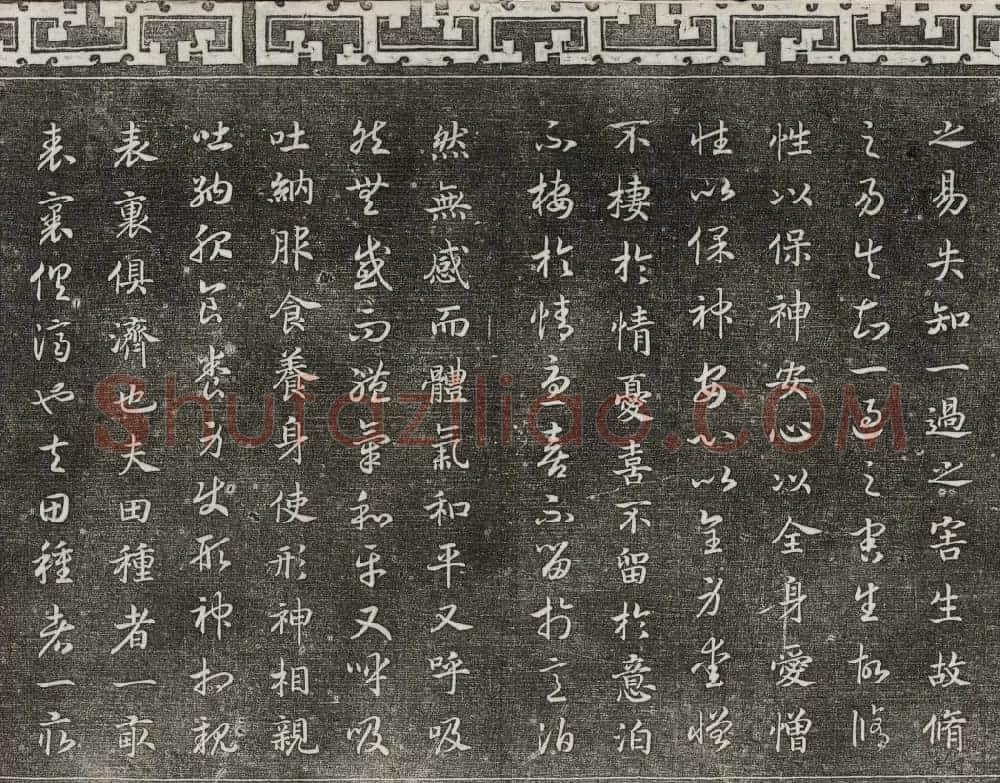 之易失知一過之害生故脩
之易失知一過之害生故脩
性以保神安心以全身愛憎
性以保神安心以全身愛憎
不棲於情憂喜不留於意泊
不棲於情憂喜不留於意泊
然無感而體氣和平又呼吸
然無感而體氣和平又呼吸
吐納服食養身使形神相親
吐納服食養身使形神相親
表裏俱濟也夫田種者一畝
表裏俱濟也夫田種者一畝
Shufaziliao.COM